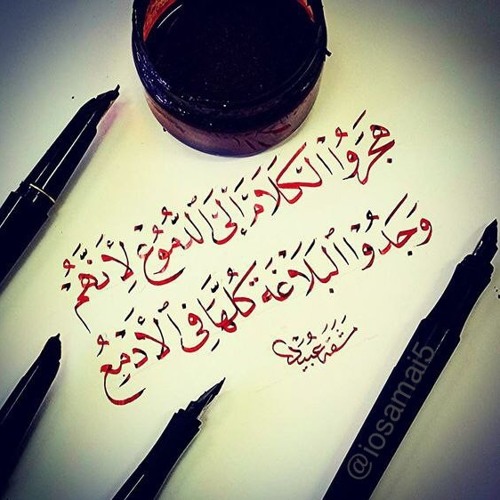 هَجَرُوا الكَلَامَ إِلَى الدُّمُوعِ لِأَنَّهُمْ
وَجَدُوا البَلَاغَةَ كُلَّهَا فِي الأَدْمُعِ
@iosamai5